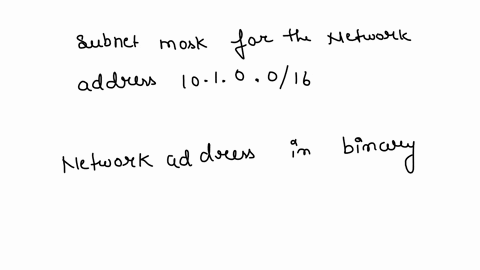 Subnet mosk for the Network
address 10.1.0.0/16
Network address in binary